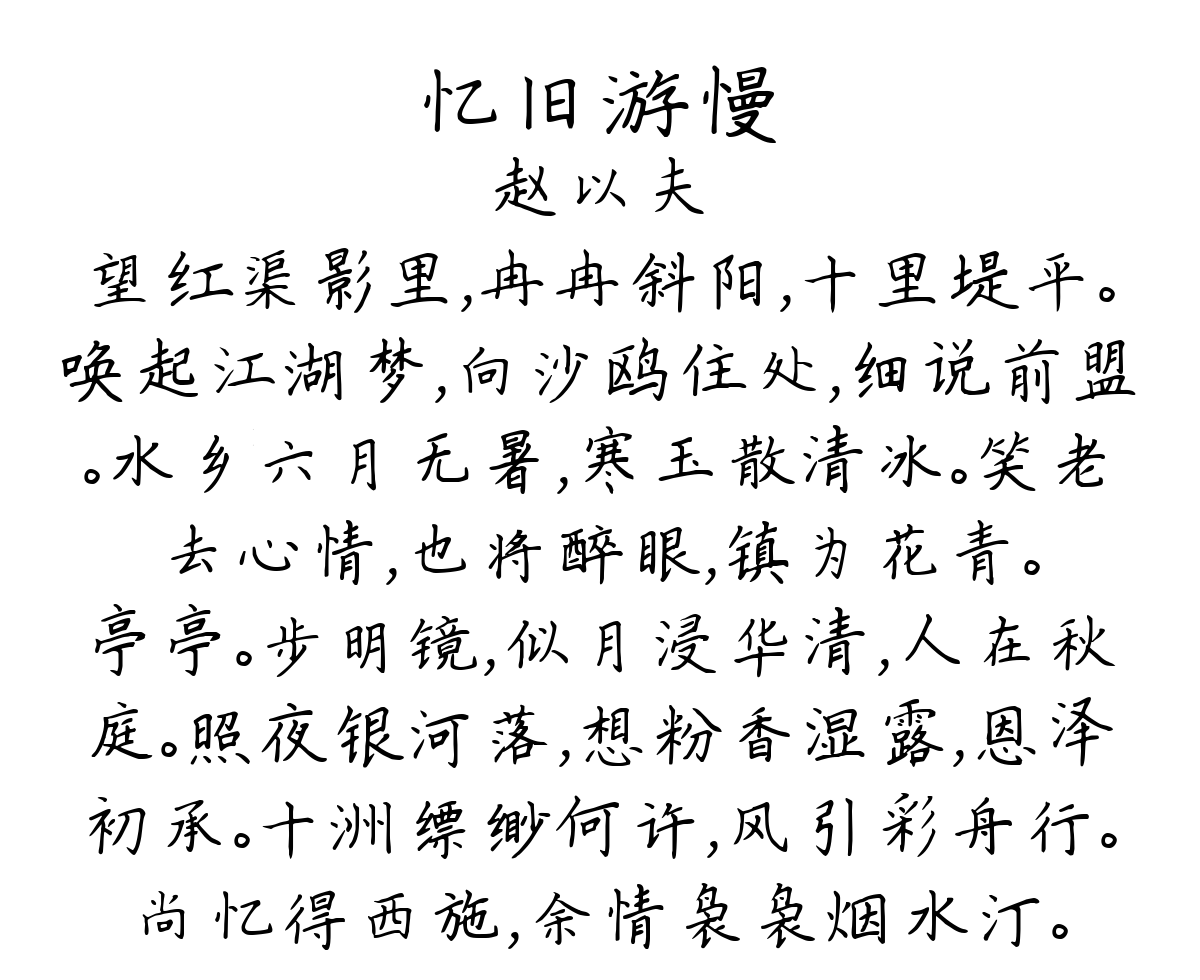 忆旧游慢
赵以夫
望红渠影里,冉冉斜阳,十里堤平。
唤起江湖梦,向沙鸥住处,细说前盟
。水乡六月无暑,寒玉散清冰。笑老
去心情,也将醉眼,镇为花青。
亭亭。步明镜,似月浸华清,人在秋
庭。照夜银河落,想粉香湿露,恩泽
初承。十洲缥缈何许,风引彩舟行。
尚忆得西施,余情袅袅烟水汀。